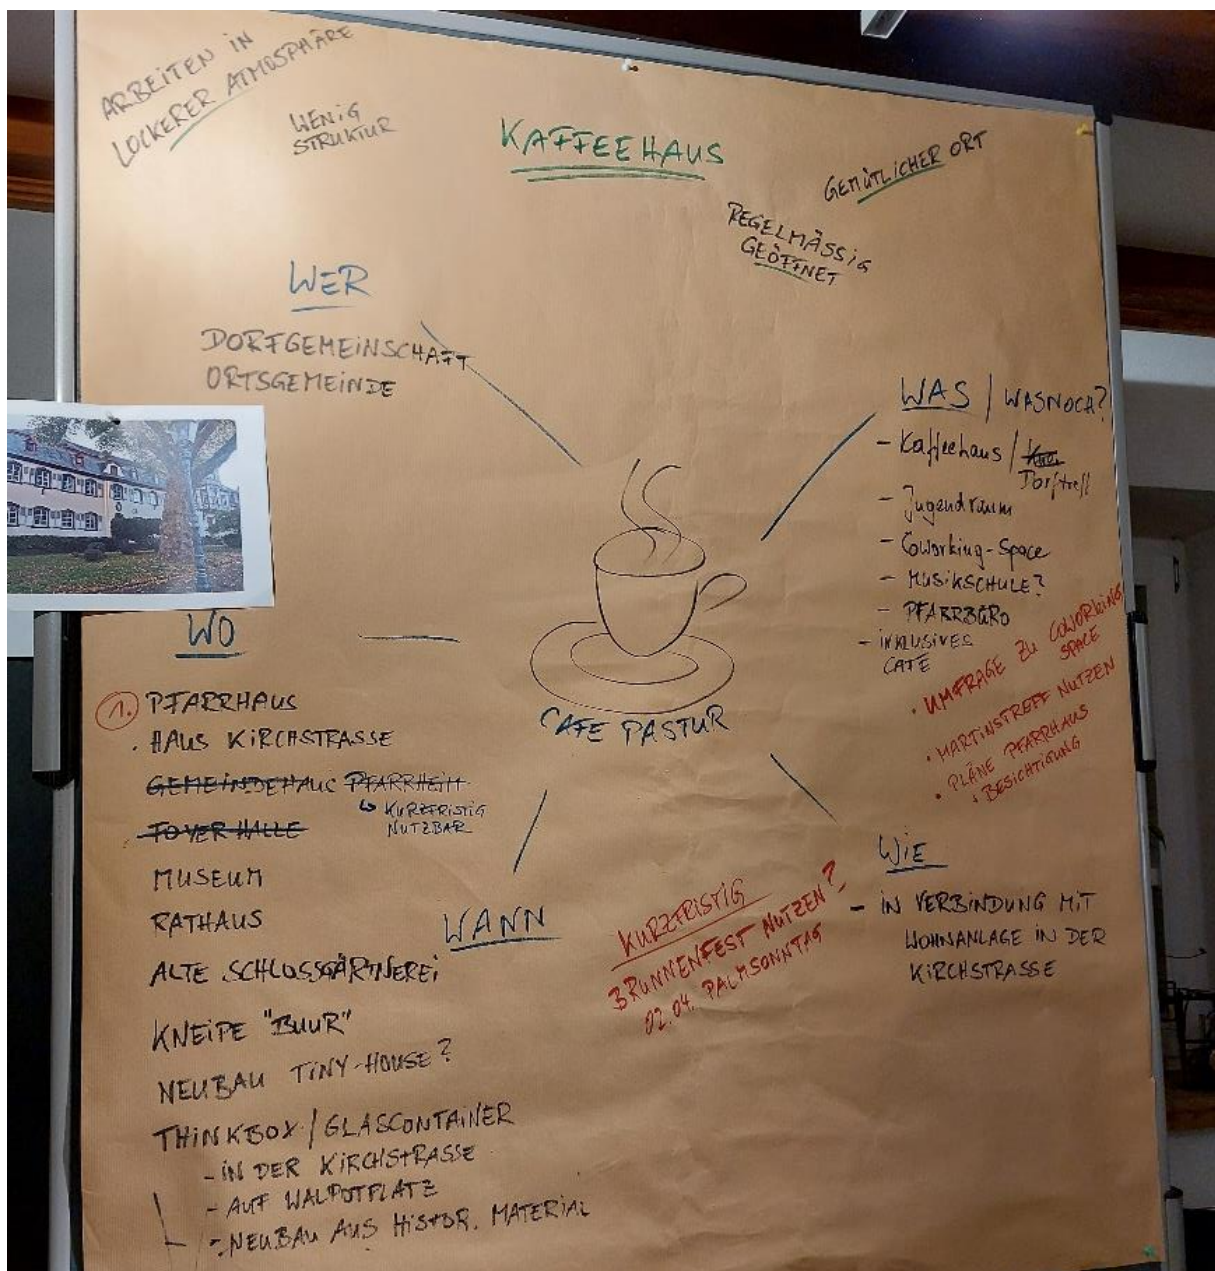 ARBEITEN IN
LOCKERER ATMOSPHÄRE
WENIG
STRUKTUR
KAFFEEHAUS
GEMÜTLICHER ORT
REGELMÄSSIG
GEÖFFNET
WER
DORFGEMEINSCHAFT
ORTSGEMEINDE
WAS / WASNOCH?
- Kaffeehaus /
Dorftreff
- Jugendraum
- Coworking-Space
- MUSIKSCHULE?
- PFARRBÜRO
- INKLUSIVES
CAFE
• UMFRAGE ZU COWORKING
SPACE
• MARTINSTREFF NUTZEN
• PLÄNE PFARRHAUS
+ BESICHTIGUNG
WO
1. PFARRHAUS
• HAUS KIRCHSTRASSE
GEMEINDEHAUS PFARRHEIM
↳ KURZFRISTIG
NUTZBAR
FOYER HALLE
MUSEUM
RATHAUS
ALTE SCHLOSSGÄRTNEREI
KNEIPE "BUUR"
NEUBAU TINY-HOUSE?
THINKBOX / GLASCONTAINER
- IN DER KIRCHSTRASSE
- AUF WALPOTPLATZ
- NEUBAU AUS HISTOR. MATERIAL
CAFE PASTUR
WANN
KURZFRISTIG
BRUNNENFEST NUTZEN?
02.04. PALMSONNTAG
WIE
- IN VERBINDUNG MIT
WOHNANLAGE IN DER
KIRCHSTRASSE